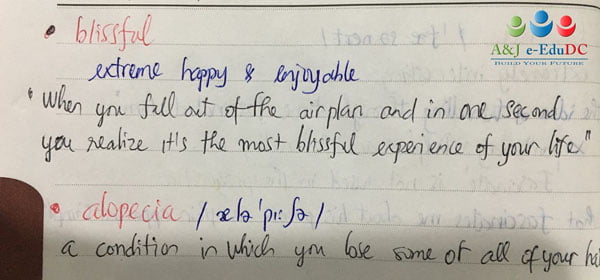 A&J e-EduDC
BUILD YOUR FUTURE
• blissful
extreme happy & enjoyable
"When you fall out of the airplan and in one second
you realize it's the most blissful experience of your life"
• alopecia /ælə'pɪːʃə/
a condition in which you lose some of all of your hai